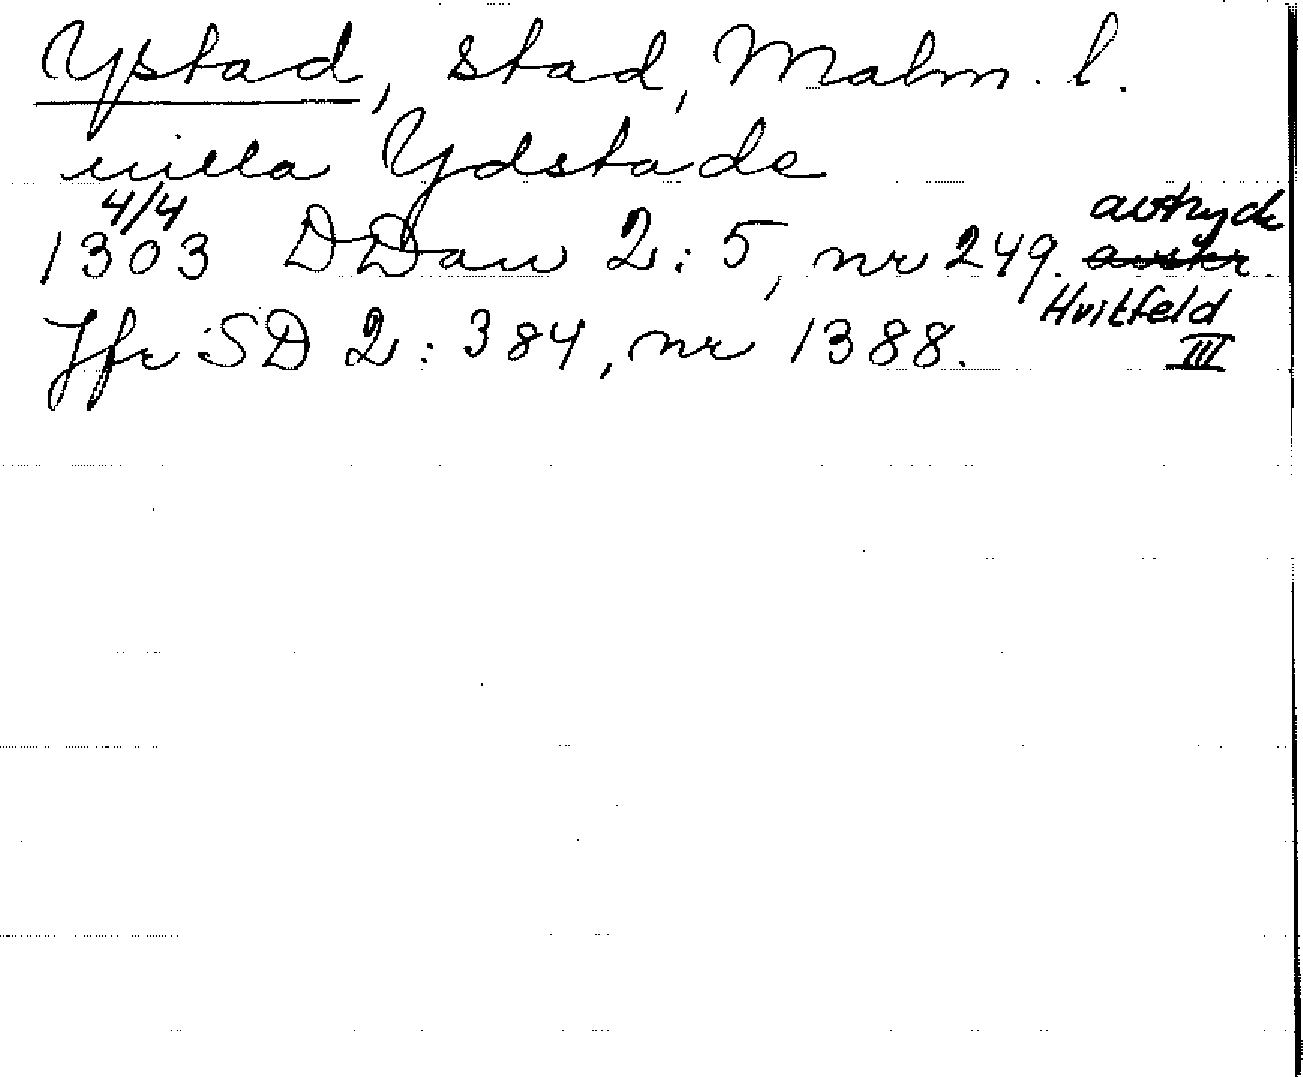 Ystad, stad, Malm. l.
villa Ydstade
4/4
1303 DDan 2:5, nr 249. avskr avtryck
Hvitfeld
III
Jfr SD 2:384, nr 1388.